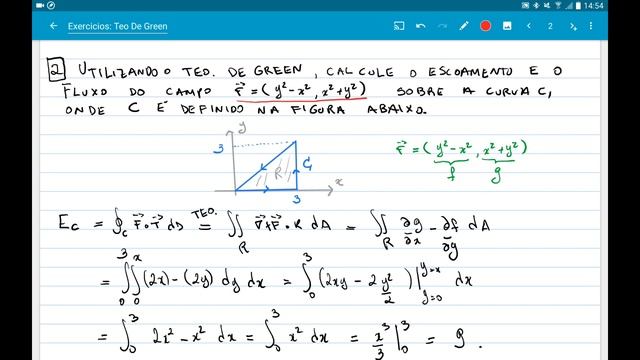 14:54
Exercicios: Teo De Green
2
2 UTILIZANDO O TEO. DE GREEN, CALCULE O ESCOAMENTO E O
FLUXO DO CAMPO F⃗ = (y²-x², x²+y²) SOBRE A CURVA C,
ONDE C É DEFINIDO NA FIGURA ABAIXO.
y
3
R
C
x
3
F⃗ = (y²-x², x²+y²)
f g
E_C = ∮_C F⃗·T⃗ dS =^{TEO.} ∬_R ∇⃗×F⃗·K dA = ∬_R ∂g/∂x - ∂f/∂y dA
= ∫_0^3 ∫_0^x (2x)-(2y) dy dx = ∫_0^3 (2xy - 2y²/2)|_{y=0}^{y=x} dx
= ∫_0^3 2x² - x² dx = ∫_0^3 x² dx = x³/3 |_0^3 = 9.